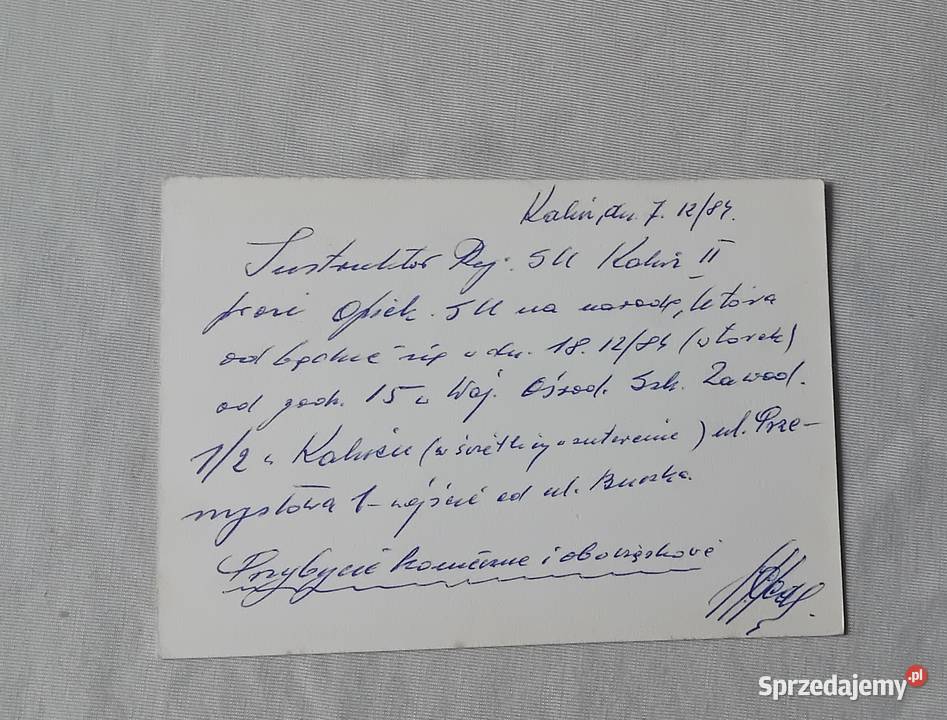 Kalisz, dn. 7. 12/84.
Instruktor Rej. SU Kalisz II
prosi Opiek. SU na naradę, która
odbędzie się w dn. 18. 12/84 (wtorek)
od godz. 15 w Woj. Ośrod. Szk. Zawod.
1/2 w Kaliszu (w świetlicy w suterenie) ul. Prze-
mysłowa 1 - wejście od ul. Buczka.
Przybycie konieczne i obowiązkowe
Sprzedajemy.pl